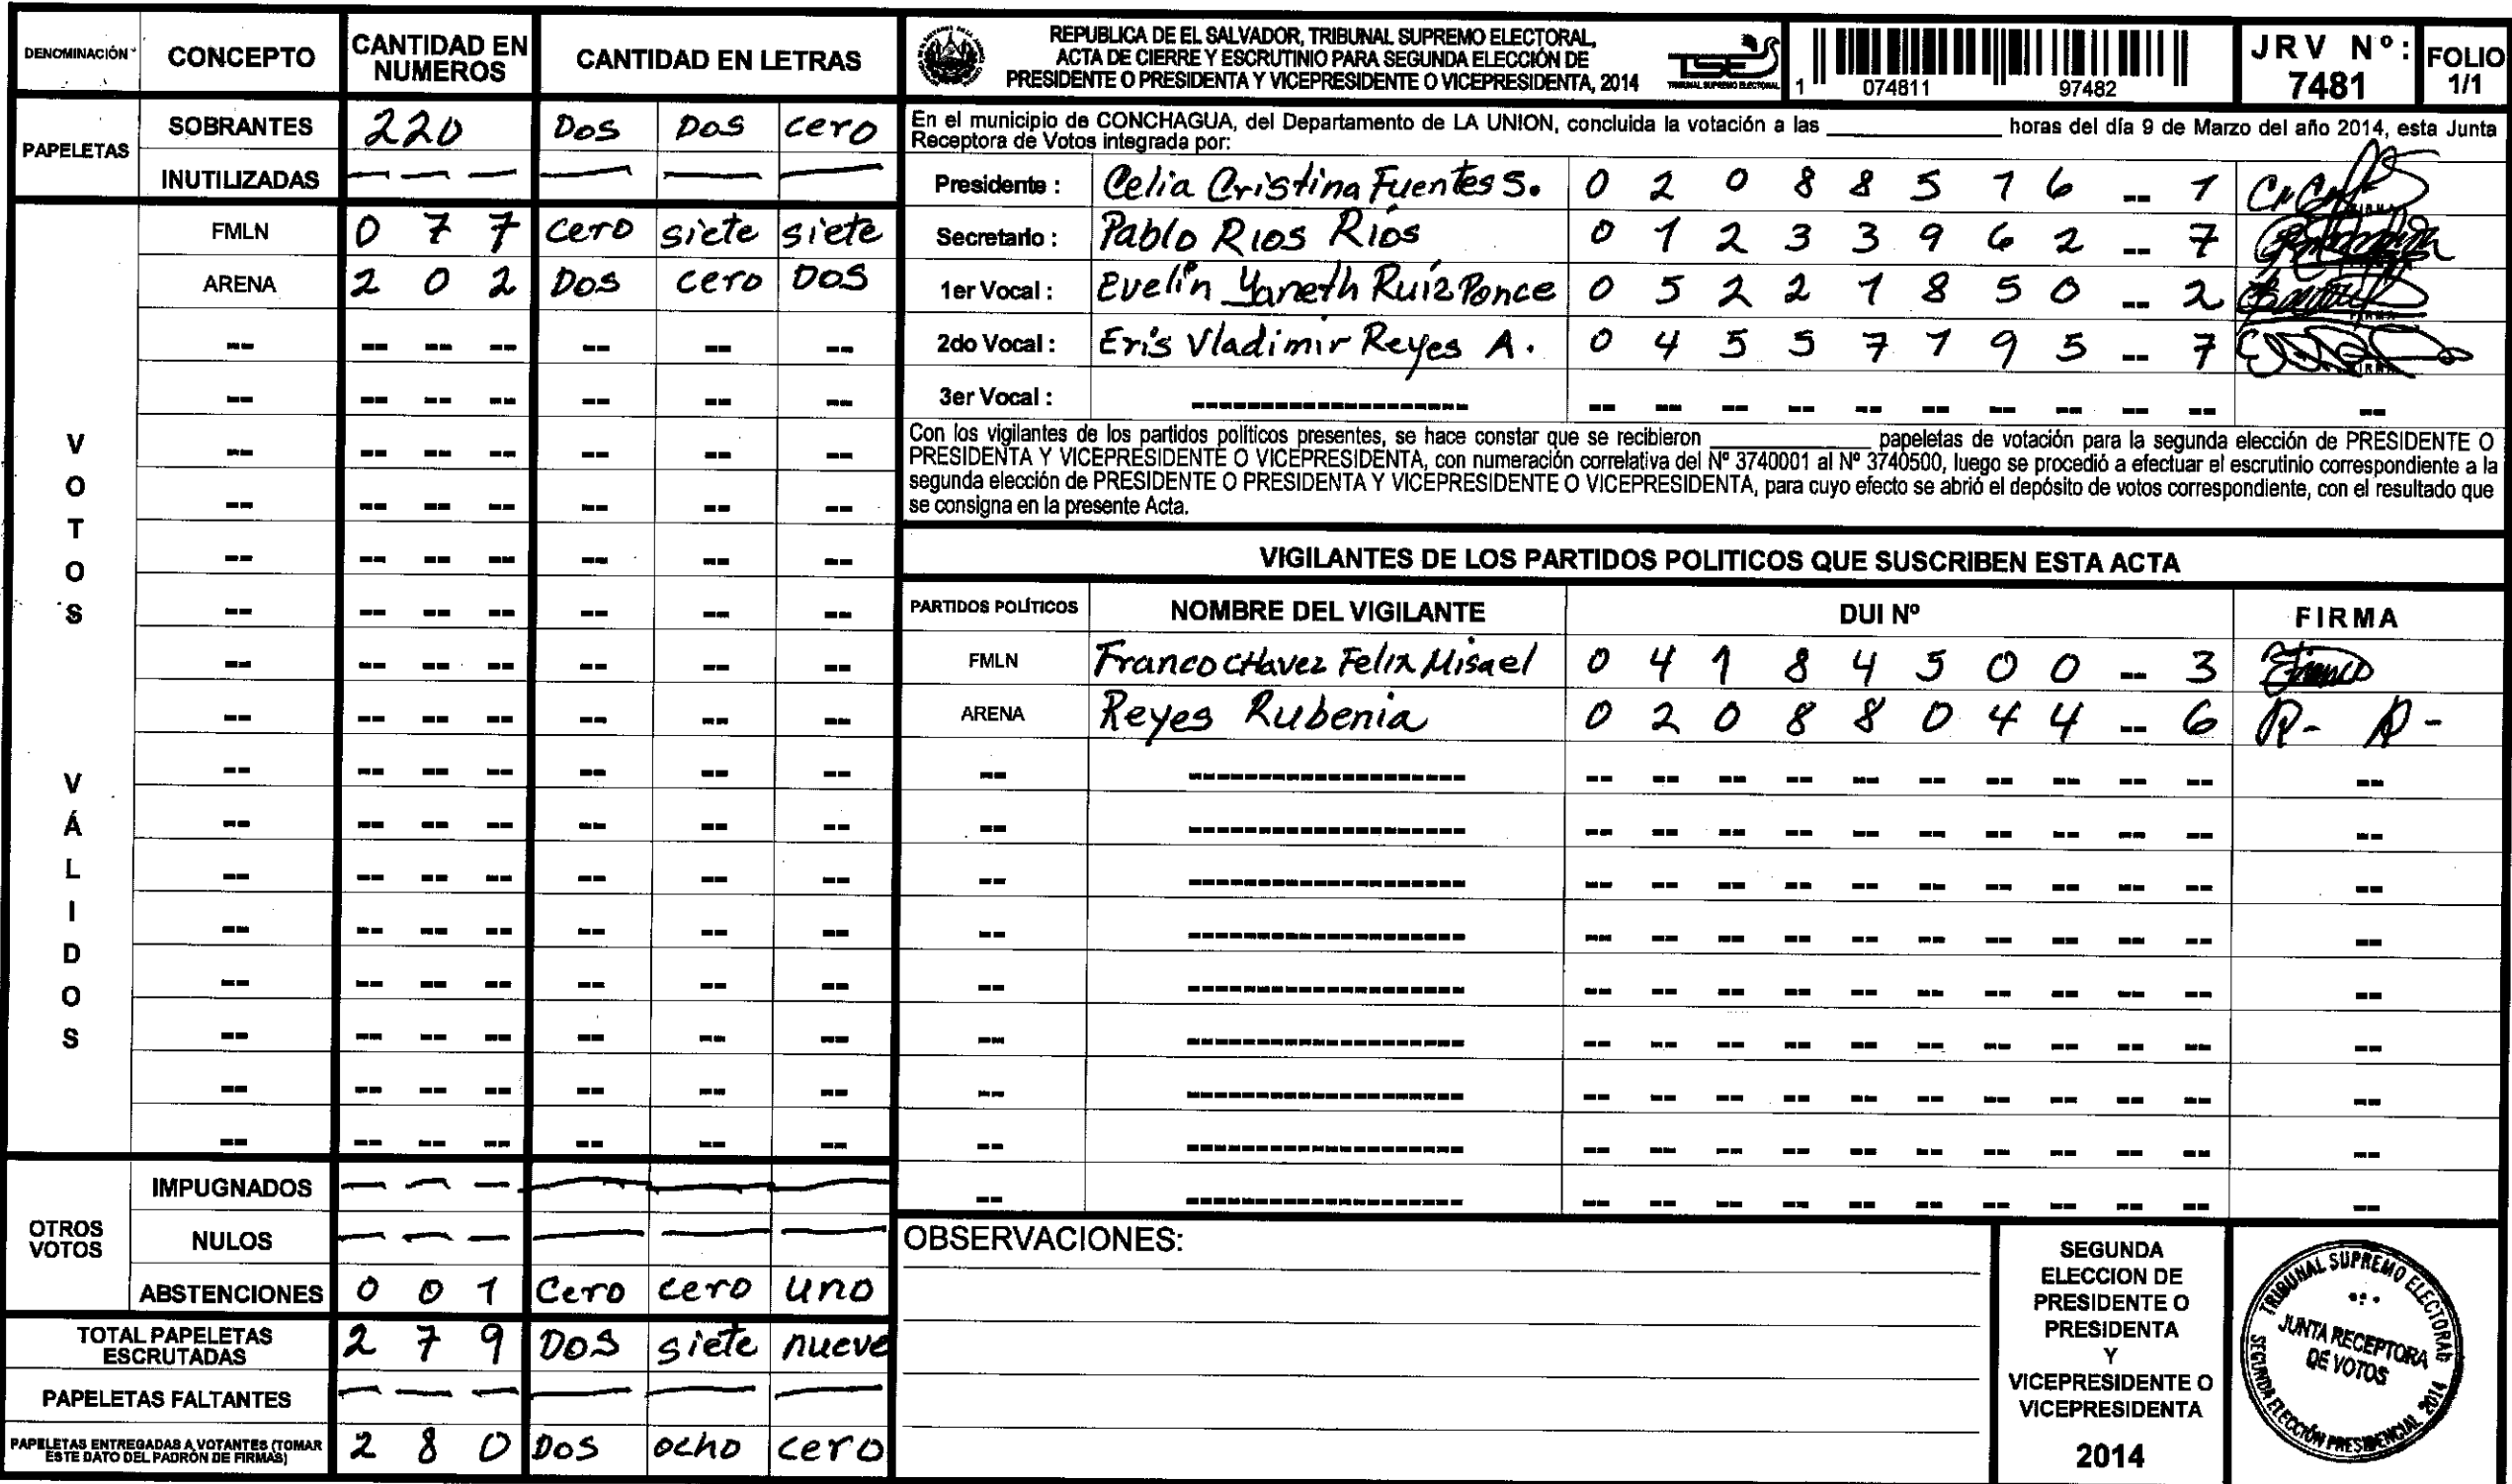 DENOMINACIÓN CONCEPTO CANTIDAD EN NUMEROS CANTIDAD EN LETRAS
PAPELETAS
SOBRANTES 220 Dos Dos cero
INUTILIZADAS — — — — — —
VOTOS VÁLIDOS
FMLN 0 7 7 cero siete siete
ARENA 2 0 2 Dos cero Dos
OTROS VOTOS
IMPUGNADOS — — — — — —
NULOS — — — — — —
ABSTENCIONES 0 0 1 Cero cero uno
TOTAL PAPELETAS ESCRUTADAS 2 7 9 Dos siete nueve
PAPELETAS FALTANTES — — — — — —
PAPELETAS ENTREGADAS A VOTANTES (TOMAR ESTE DATO DEL PADRÓN DE FIRMAS) 2 8 0 Dos ocho cero
REPUBLICA DE EL SALVADOR, TRIBUNAL SUPREMO ELECTORAL,
ACTA DE CIERRE Y ESCRUTINIO PARA SEGUNDA ELECCIÓN DE
PRESIDENTE O PRESIDENTA Y VICEPRESIDENTE O VICEPRESIDENTA, 2014
TSE
TRIBUNAL SUPREMO ELECTORAL
1 074811 97482
JRV Nº: 7481
FOLIO 1/1
En el municipio de CONCHAGUA, del Departamento de LA UNION, concluida la votación a las ________ horas del día 9 de Marzo del año 2014, esta Junta
Receptora de Votos integrada por:
Presidente : Celia Cristina Fuentes S. 0 2 0 8 8 5 1 6 -- 1
Secretario : Pablo Rios Ríos 0 1 2 3 3 9 6 2 -- 7
1er Vocal : Evelin Yaneth Ruiz Ponce 0 5 2 2 1 8 5 0 -- 2
2do Vocal : Eris Vladimir Reyes A. 0 4 5 5 7 1 9 5 -- 7
3er Vocal :
Con los vigilantes de los partidos políticos presentes, se hace constar que se recibieron ________ papeletas de votación para la segunda elección de PRESIDENTE O
PRESIDENTA Y VICEPRESIDENTE O VICEPRESIDENTA, con numeración correlativa del Nº 3740001 al Nº 3740500, luego se procedió a efectuar el escrutinio correspondiente a la
segunda elección de PRESIDENTE O PRESIDENTA Y VICEPRESIDENTE O VICEPRESIDENTA, para cuyo efecto se abrió el depósito de votos correspondiente, con el resultado que
se consigna en la presente Acta.
VIGILANTES DE LOS PARTIDOS POLITICOS QUE SUSCRIBEN ESTA ACTA
PARTIDOS POLÍTICOS NOMBRE DEL VIGILANTE DUI Nº FIRMA
FMLN Franco CHavez Felix Misael 0 4 1 8 4 5 0 0 -- 3 Franco
ARENA Reyes Rubenia 0 2 0 8 8 0 4 4 -- 6 R- R-
OBSERVACIONES:
SEGUNDA
ELECCION DE
PRESIDENTE O
PRESIDENTA
Y
VICEPRESIDENTE O
VICEPRESIDENTA
2014
TRIBUNAL SUPREMO ELECTORAL
JUNTA RECEPTORA
DE VOTOS
SEGUNDA ELECCIÓN PRESIDENCIAL 2014